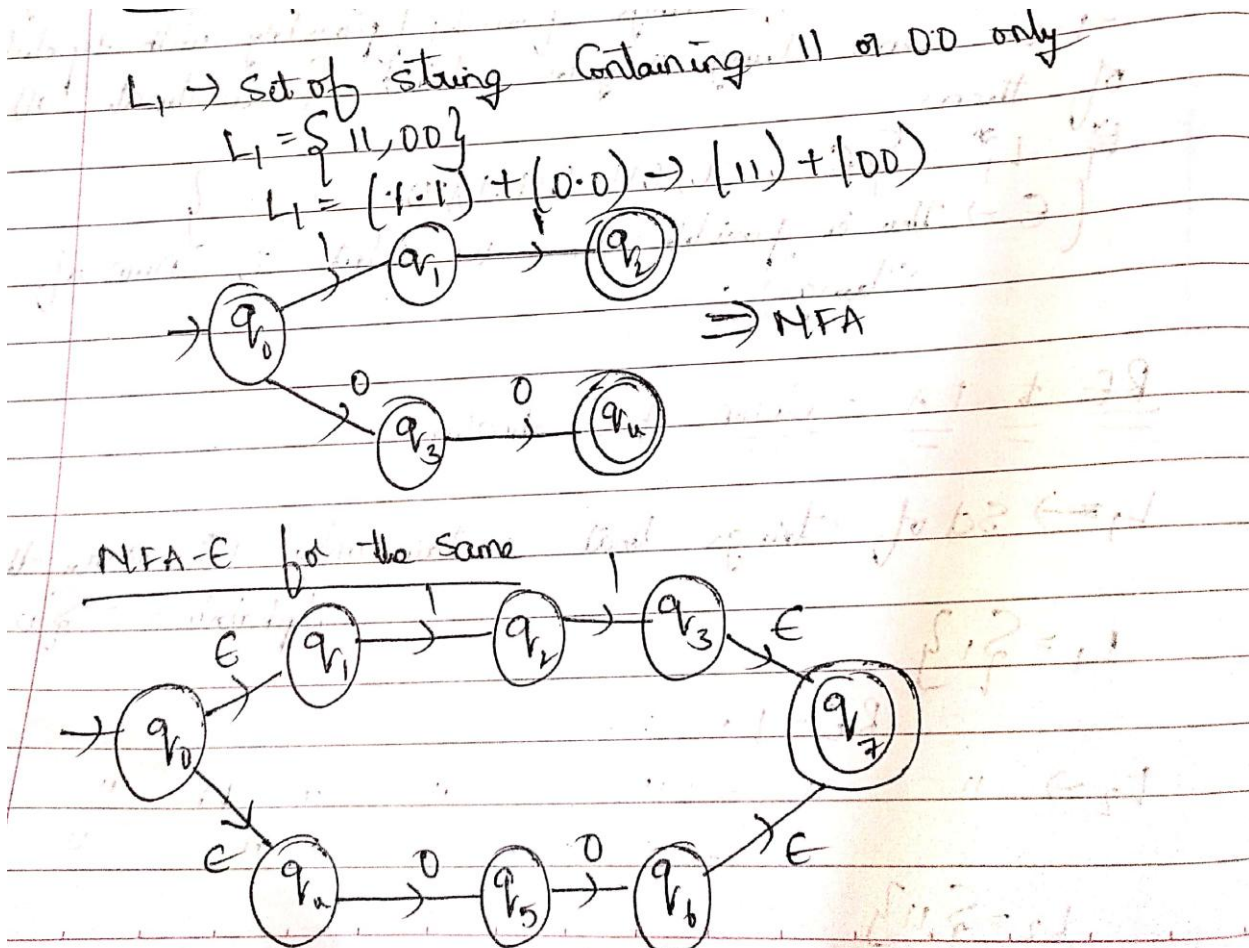 L₁ → Set of string Containing 11 or 00 only
L₁ = { 11, 00}
L₁ = (1·1) + (0·0) → (11) + (00)
1 q₁ 1 q₂
→ q₀ ⇒ NFA
0 q₃ 0 q₄
NFA-ϵ for the same
ϵ q₁ 1 q₂ 1 q₃ ϵ
→ q₀ q₇
ϵ q₄ 0 q₅ 0 q₆ ϵ